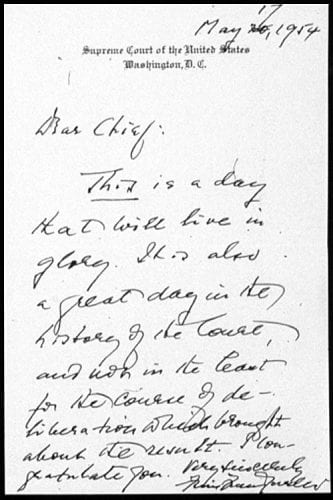 17
May 20, 1954
Supreme Court of the United States
Washington, D.C.
Dear Chief:
This is a day
that will live in
glory. It is also
a great day in the
history of the Court,
and not in the least
for the course of de-
liberation which brought
about the result. I con-
gratulate you. Very sincerely
Felix Frankfurter